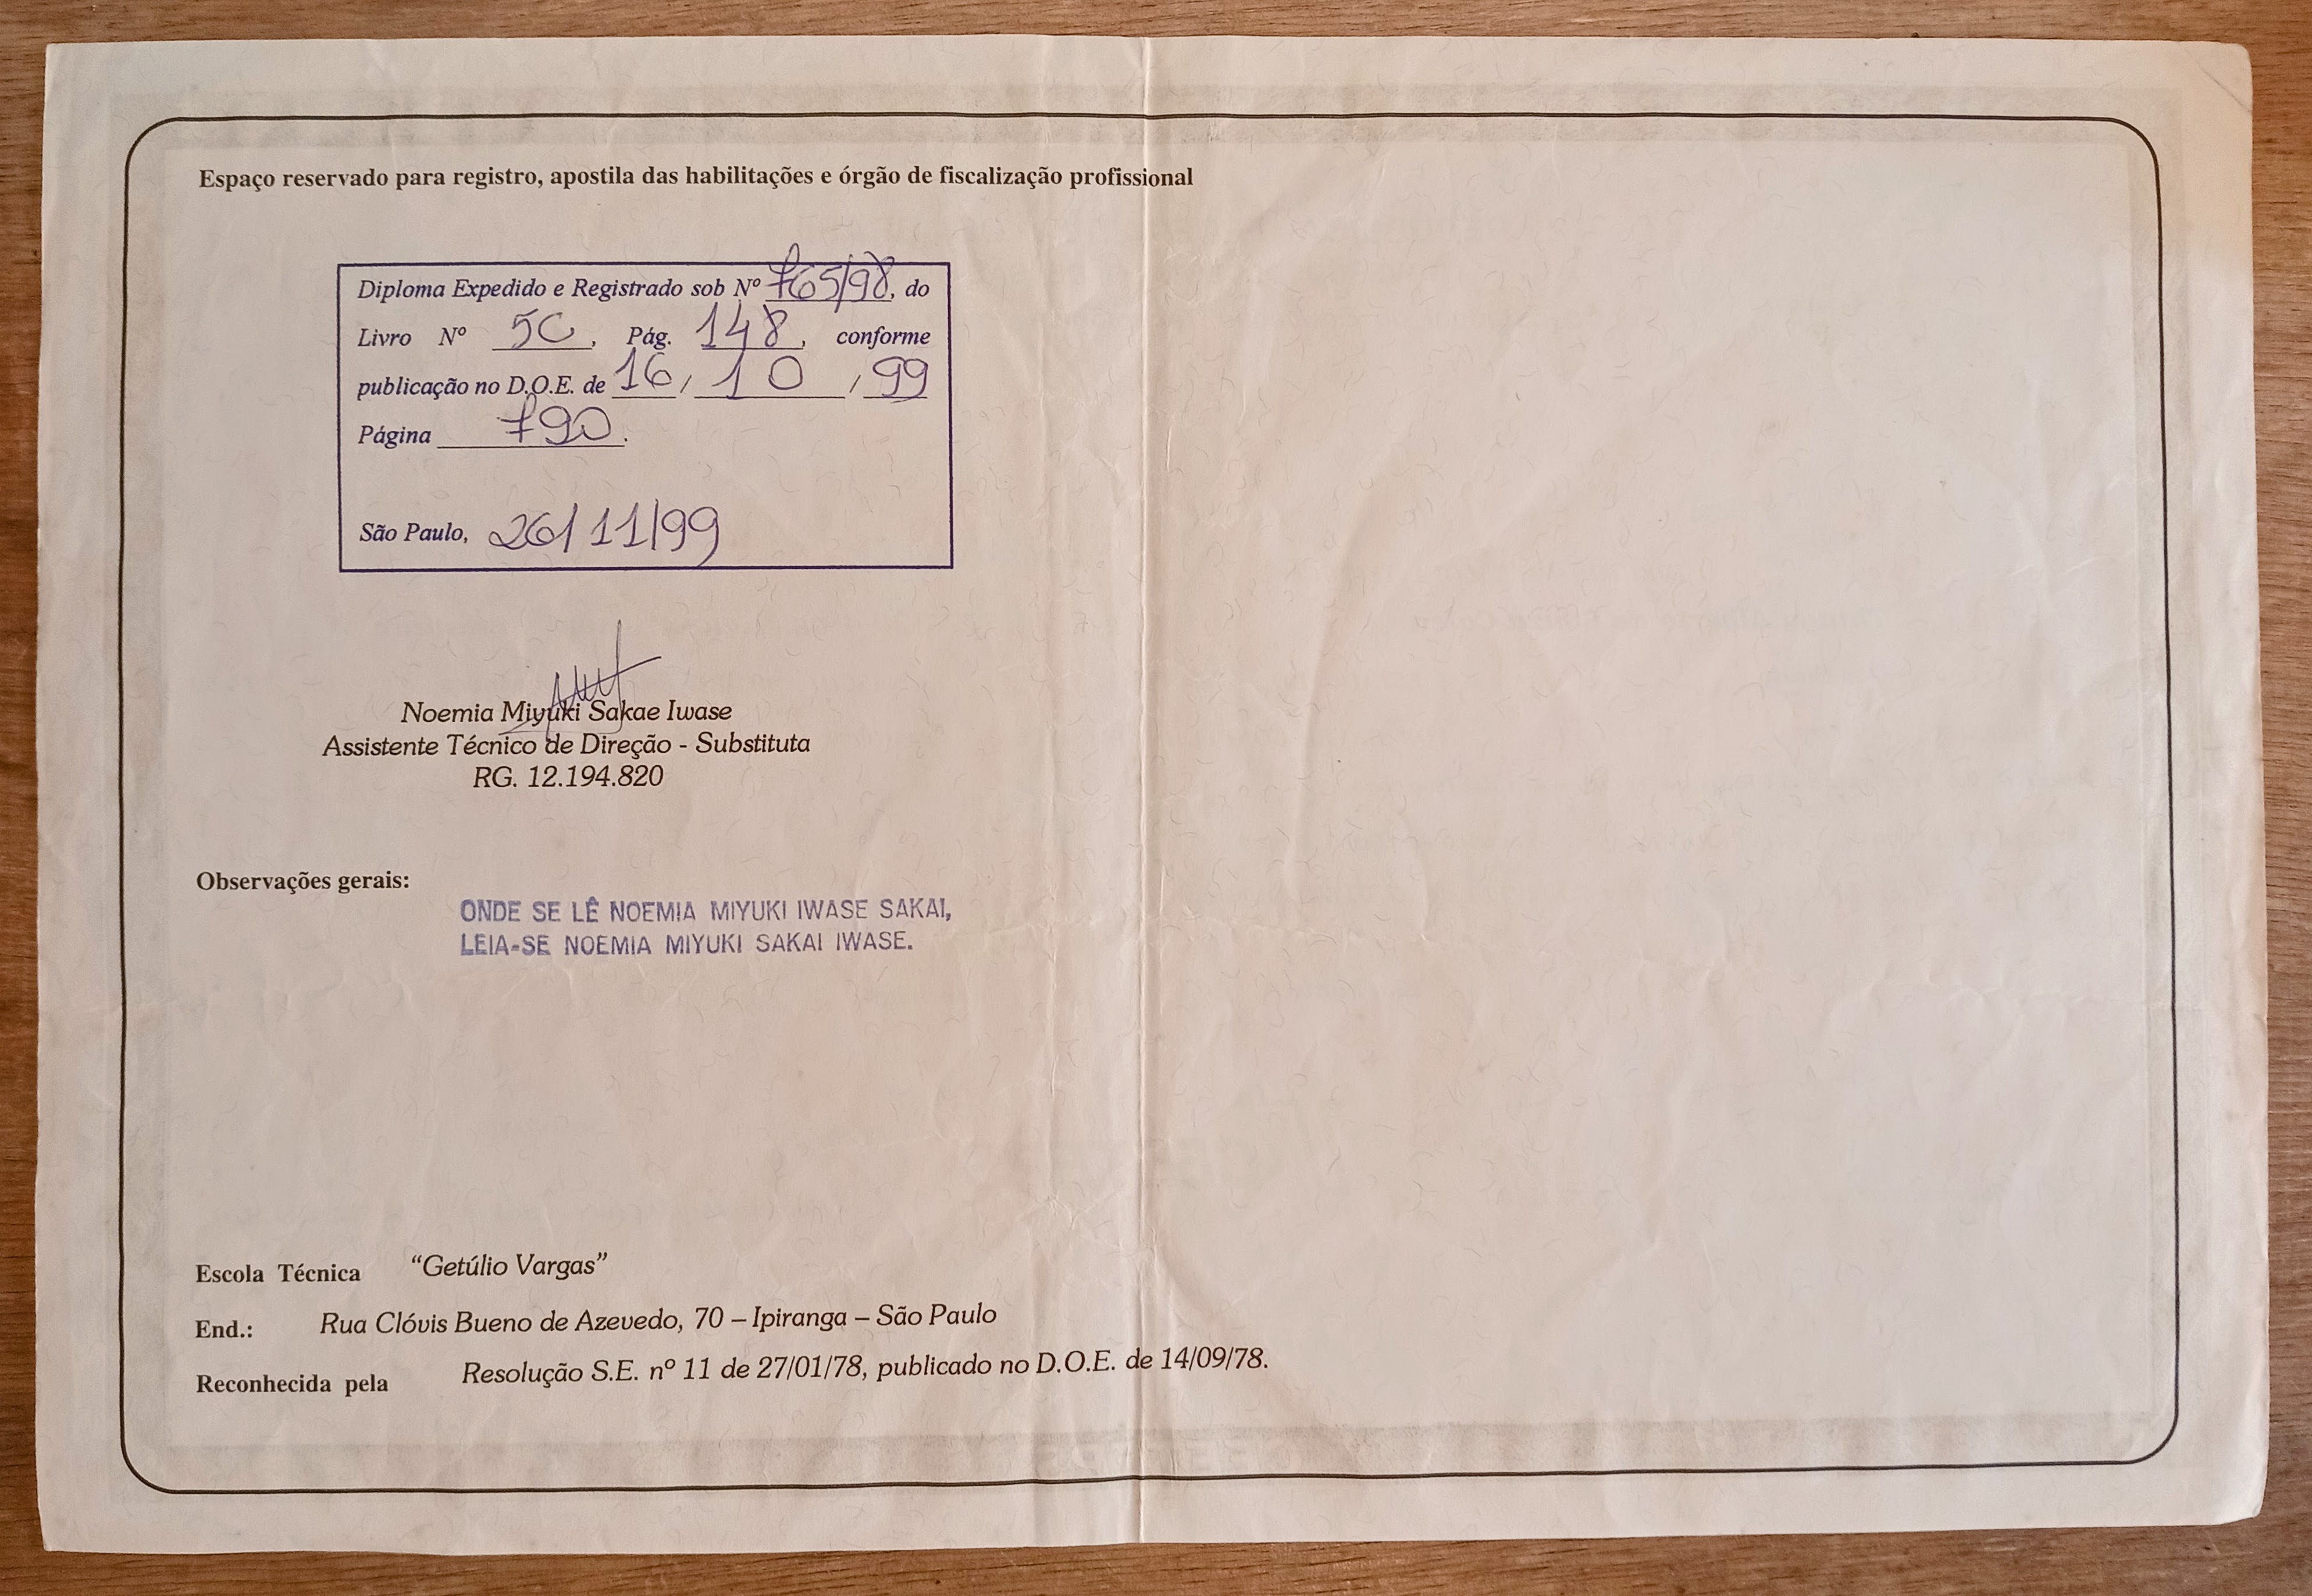 Espaço reservado para registro, apostila das habilitações e órgão de fiscalização profissional
Diploma Expedido e Registrado sob Nº 765/98, do
Livro Nº 5C, Pág. 148, conforme
publicação no D.O.E. de 16 / 10 / 99
Página 790.
São Paulo, 26/11/99
Noemia Miyuki Sakae Iwase
Assistente Técnico de Direção - Substituta
RG. 12.194.820
Observações gerais:
ONDE SE LÊ NOEMIA MIYUKI IWASE SAKAI,
LEIA-SE NOEMIA MIYUKI SAKAI IWASE.
Escola Técnica “Getúlio Vargas”
End.: Rua Clóvis Bueno de Azevedo, 70 – Ipiranga – São Paulo
Reconhecida pela Resolução S.E. nº 11 de 27/01/78, publicado no D.O.E. de 14/09/78.